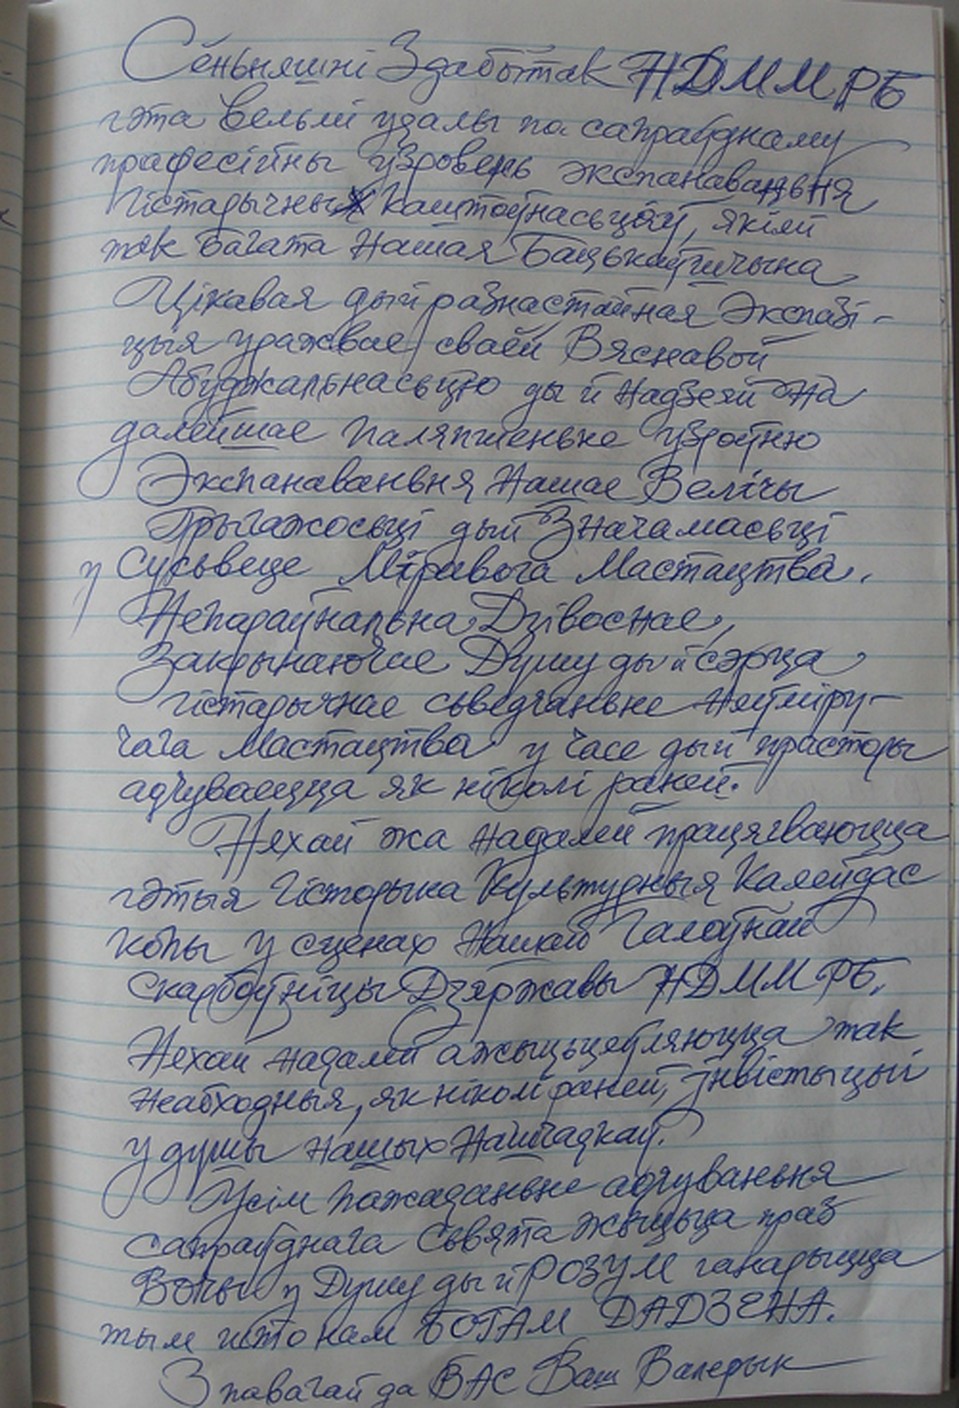 Сёньняшні Здабытак НДММ РБ
гэта вельмі удалы па сапраўднаму
прафесійны узровень экспанаваньня
Гістарычных каштоўнасьцяў, якімі
так багата Нашая Бацькаўшчына
Цікавая дый разнастайная Экспазі-
цыя уражвае сваёй Вяснавой
Абуджальнасьцю ды й надзеяй На
далейшае паляпшеньне узроўню
Экспанаваньня Нашае Велічы
Прыгажосьці дый Значамасьці
у Сусьвеце Міравога Мастацтва.
Непараўнальна Дзівоснае,
Закранаючае Душу ды й сэрца
гістарычнае сьведчаньне Неўміру-
чага Мастацтва у часе дый прасторы
адчуваецца як ніколі раней.
Няхай жа надалей працягваюцца
гэтыя Гісторыка Культурныя Калейдас
копы у сценах Нашай Галоўнай
Скарбоўніцы Дзяржавы НДММ РБ.
Няхай надалей ажыцьцяўляюцца так
неабходныя, як ніколі раней, інвістыцыі
у душы нашых Нашчадкаў.
Усім пажаданьне адчуваньня
сапраўднага Сьвята Жыцьця праз
Вочы у Душу ды й РОЗУМ гаварыцца
тым што нам БОГАМ ДАДЗЕНА.
З павагай да ВАС Ваш Валерык